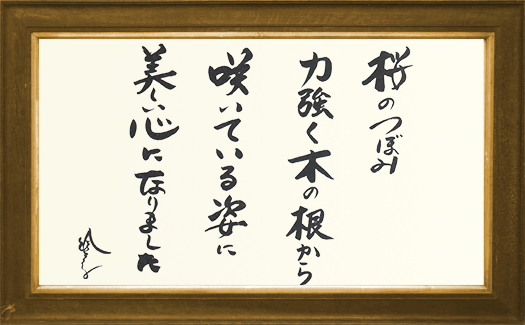 桜のつぼみ
力強く木の根から
咲いている姿に
美しい心になりました